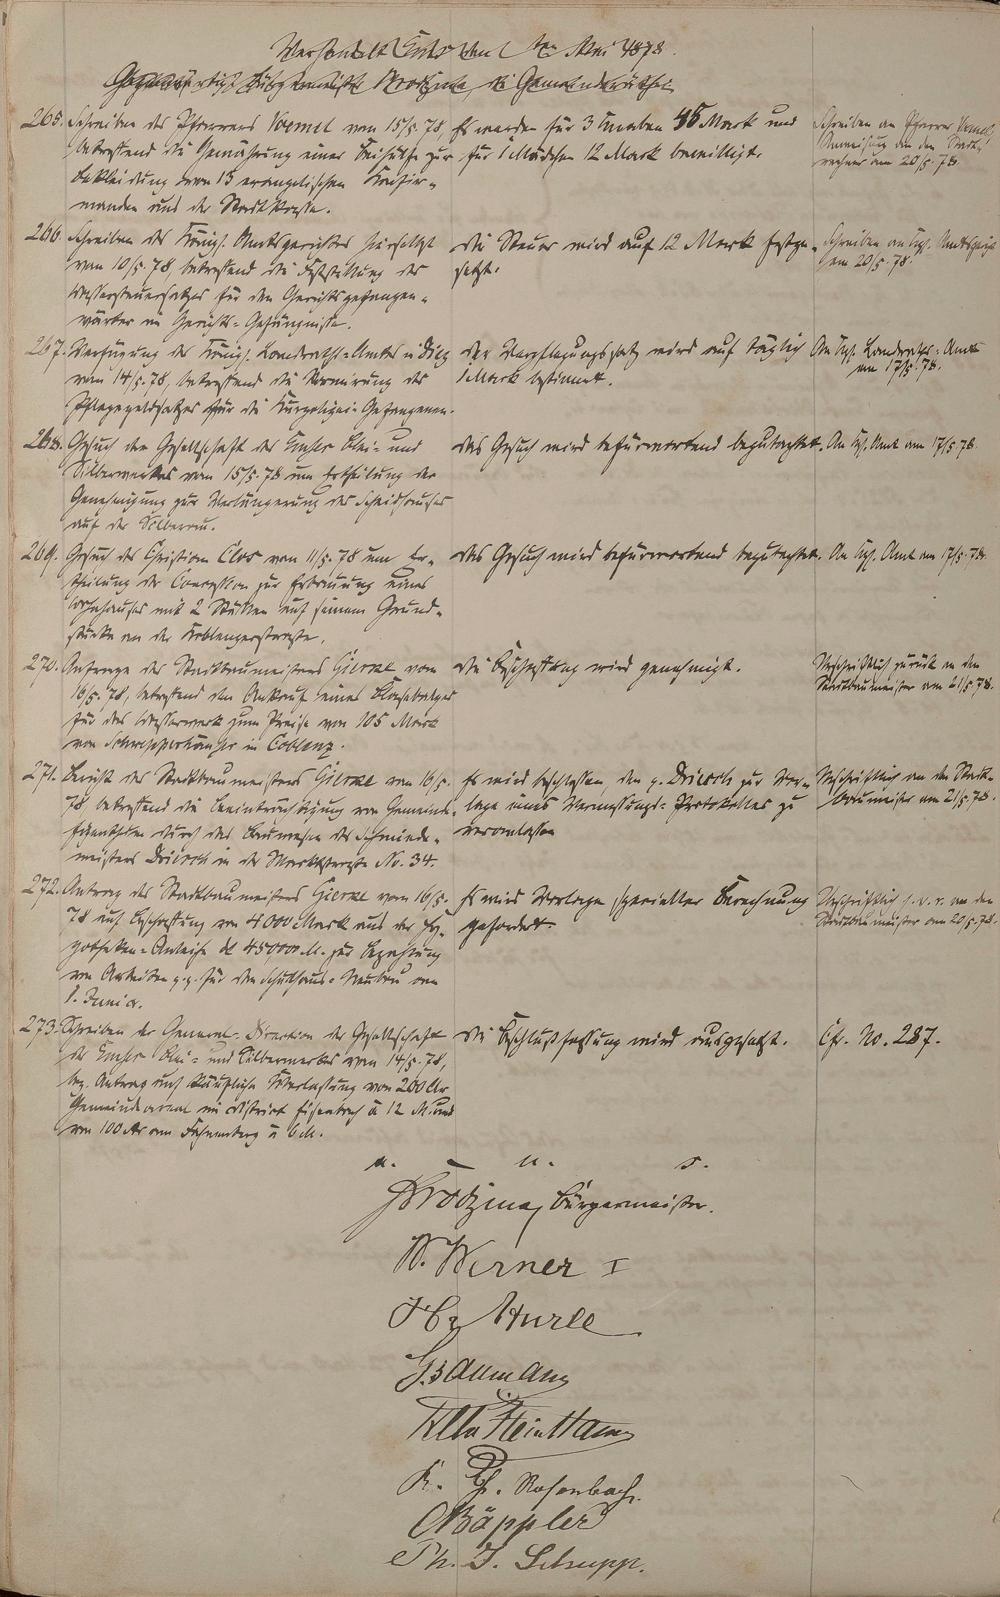 Verhandelt Ems den Mai 1878.
Gegenwärtig: Bürgermeister die Gemeinderäthe:
265. Schreiben des Pfarrers Vomel vom 15/5. 78,
betreffend die Gewährung einer Beihülfe zur
Bekleidung von 15 evangelischen Konfir-
manden aus der Stadtkasse.
Es werden für 3 Knaben 45 Mark und
für 1 Mädchen 12 Mark bewilligt.
Schreiben an Pfarrer Vomel
Anweisung an den Stadt-
rechner am 20/5. 78.
266. Schreiben des Königl. Amtsgerichtes hierselbst
vom 10/5. 78, betreffend die Feststellung des
Wassersteuersatzes für den Gerichtsgefangen-
wärter im Gerichts-Gefängnisse.
Die Steuer wird auf 12 Mark festge-
setzt.
Schreiben an Kgl. Amtsgericht
am 20/5. 78.
267. Verfügung des Königl. Landraths-Amtes in Diez
vom 14/5. 78, betreffend die Normirung des
Pflegegeldsatzes für die Kurpolizei-Gefangenen.
Der Verpflegungssatz wird auf täglich
1 Mark bestimmt.
An Kgl. Landraths-Amt
am 17/5. 78.
268. Gesuch der Gesellschaft des Emser Blei- und
Silberwerkes vom 15/5. 78 um Ertheilung der
Genehmigung zur Verlängerung des Scheidhauses
auf der Silberau.
Das Gesuch wird befürwortend begutachtet.
An Kgl. Amt am 17/5 78.
269. Gesuch des Christian Clos vom 11/5. 78 um Er-
theilung der Concession zur Erbauung eines
Wohnhauses mit 2 Ställen auf seinem Grund-
stücke an der Koblenzerstrasse.
Das Gesuch wird befürwortend begutachtet.
An Kgl. Amt am 17/5. 78.
270. Anfrage des Stadtbaumeisters Gierke vom
16/5. 78, betreffend den Ankauf eines
für das Wasserwerk zum Preise von 105 Mark
von in Coblenz.
Die Beschaffung wird genehmigt.
Urschriftlich zurück an den
Stadtbaumeister am 21/5. 78.
271. Bericht des Stadtbaumeisters Gierke vom 16/5.
78 betreffend die Beeinträchtigung von Gemeinde-
Eigenthum durch das Bauwesen des Schmiede-
meisters Driesch in der Marktstrasse No. 34.
Es wird beschlossen, den p. Driesch zur Vor-
lage eines Vermessungs-Protokolles zu
veranlassen
Urschriftlich an den Stadt-
baumeister am 21/5. 78.
272. Antrag des Stadtbaumeisters Gierke vom 16/5.
78 auf Beschaffung von 4000 Mark aus der Hy-
potheken-Anleihe de 450000 M. zur Bezahlung
von Arbeiten p.p. für den Schulhaus-Neubau am
1. Juni cr.
Es wird Vorlage specieller Berechnung
gefordert.
Urschriftlich s. v. r. an den
Stadtbaumeister am 20/5. 78.
273. Schreiben der General-Direction der Gesellschaft
des Emser Blei- und Silberwerkes vom 14/5. 78,
bez. Antrag auf käufliche Überlassung von 200 Ar
Gemeindeareal im District Eisenbach à 12 M. und
von 100 Ar am Fahnenberg à 6 M.
Die Beschlußfassung wird ausgesetzt.
Cfr. No. 287.
a. u. s.
Bürgermeister.
W. Werner I
G. Baumann
K. Ch. Rosenbach.
Bäppler
Ph. J. Schupp.